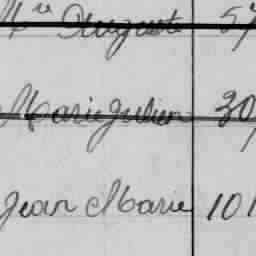 Mie Auguste 57
Marie Julien 30
Jean Marie 101